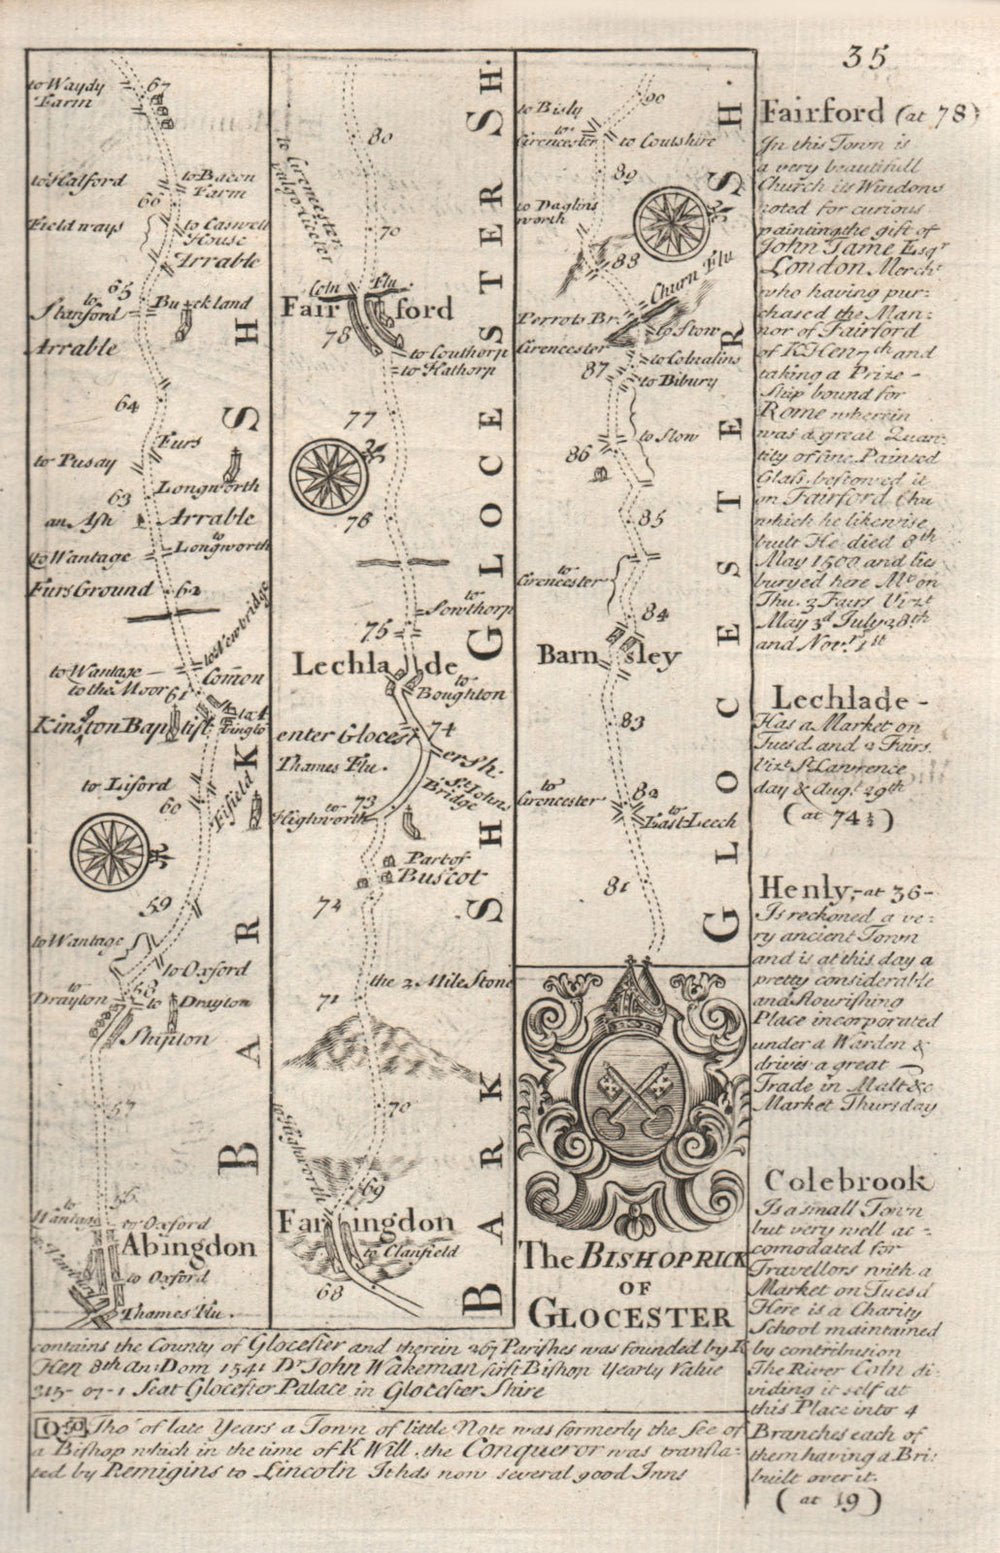 35
to Waydy
Farm
67
to Halford
to Bacon
Farm
66
Field ways
to Caswell
House
Arrable
65
to
Stanford
Buckland
Arrable
64
Furs
to Pusay
Longworth
63
an Ash
Arrable
to Wantage
to
Longworth
Furs Ground
62
to Newbridge
to Wantage
Comon
to the Moor
61
Kinston Baptist
to Liford
60
Fifield
59
to Wantage
to Oxford
to
Drayton
58
to Drayton
Shipton
57
56
to
Wantage
to Oxford
Abingdon
to Oxford
Thames Flu.
BARKSH
80
to Cirencester
70
Coln Flu
Fairford
78
to Couthorp
to Hathorp
77
76
to
Sowthorp
75
Lechlade
to
Boughton
74
enter Glocestersh.
Thames Flu.
St. Johns
Bridge
73
to
Highworth
Part of
Buscot
72
the 2 Mile Stone
71
70
to Highworth
69
Faringdon
to Clanfield
68
BARKSH
GLOCESTERSH.
90
to Bisly
to
Cirencester
to Coutshire
89
to Daglins
worth
88
Churn Flu
Perrots Br.
to Stow
Cirencester
to Colnalins
87
to Bibury
to Slow
86
85
to
Cirencester
84
Barnsley
83
to
Cirencester
82
to
East Leech
81
GLOCESTERSH.
The BISHOPRICK
OF
GLOCESTER
contains the County of Glocester and therein 267 Parishes was founded by K
Hen 8th An: Dom 1541 Dr John Wakeman first Bishop Yearly Value
315-07-1 Seat Glocester Palace in Glocester Shire
Tho' of late Years a Town of little Note was formerly the See of
a Bishop which in the time of K Will. the Conqueror was transla=
ted by Remigins to Lincoln It has now several good Inns
Fairford (at 78)
In this Town is
a very beautifull
Church its Windows
noted for curious
painting the gift of
John Tame Esqr
London Mercht
who having pur=
chased the Man=
nor of Fairford
of K Hen 7th and
taking a Prize-
Ship bound for
Rome wherein
was a great Quan=
tity of fine Painted
Glass bestowed it
on Fairford Chu
which he likewise
built He died 8th
May 1500 and lies
buryed here Mt on
Thu. 3 Fairs Vizt
May 3d July 28th
and Novr. 1st
Lechlade-
Has a Market on
Tuesd and 2 Fairs.
Vizt St Lawrence
day & Augt 29th
(at 74½)
Henly,-at 36-
Is reckoned a ve=
ry ancient Town
and is at this day a
pretty considerable
and flourishing
Place incorporated
under a Warden &
drives a great
Trade in Malt &c
Market Thursday
Colebrook
Is a small Town
but very well ac=
comodated for
Travellors with a
Market on Tuesd
Here is a Charity
School maintained
by contribution
The River Coln di
viding it self at
this Place into 4
Branches each of
them having a Bri=
built over it.
(at 19)